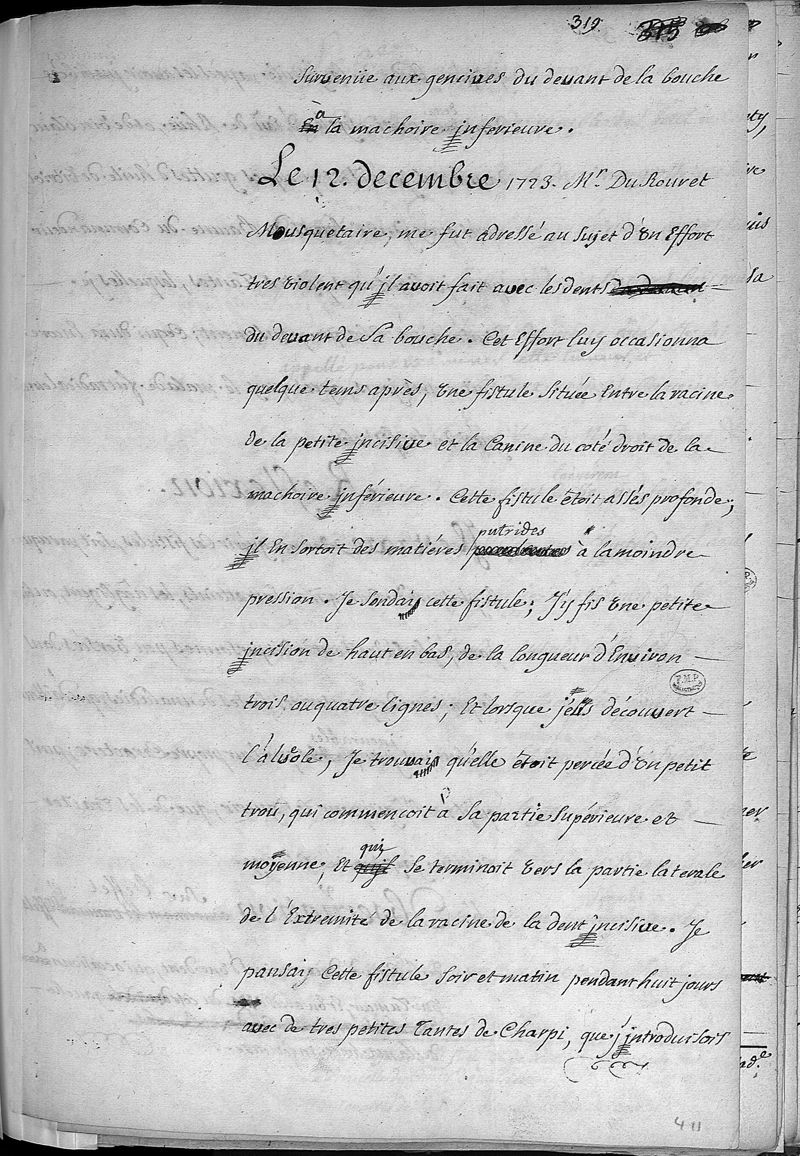 319. 315
Survenüe aux gencives du devant de la bouche
à la machoire jnferieure.
Le 12. decembre 1723. Mr. Du Rouret
Mousquetaire, me fut adressé au sujet d'un Effort
tres violent qu'jl avoit fait avec les dents
du devant de sa bouche. Cet Effort luy occasionna
quelque tems après, une fistule située Entre la racine
de la petite jncisive et la Canine du coté droit de la
machoire jnférieure. Cette fistule étoit assés profonde;
jl En sortoit des matiéres putrides à la moindre
pression. Je sondai cette fistule; J'y fis une petite
jncision de haut en bas, de la longueur d'Environ
trois, ou quatre lignes; Et lorsque j'eus découvert
l'alveole, Je trouvai qu'elle étoit percée d'un petit
trou, qui commencoit à sa partie supérieure et
moyenne, Et qui se terminoit vers la partie laterale
de l'Extremité de la racine de la dent jncisive. Je
pansai Cette fistule soir et matin pendant huit jours
avec de tres petites Tantes de Charpi, que j'jntroduisois
F.M.P.
411